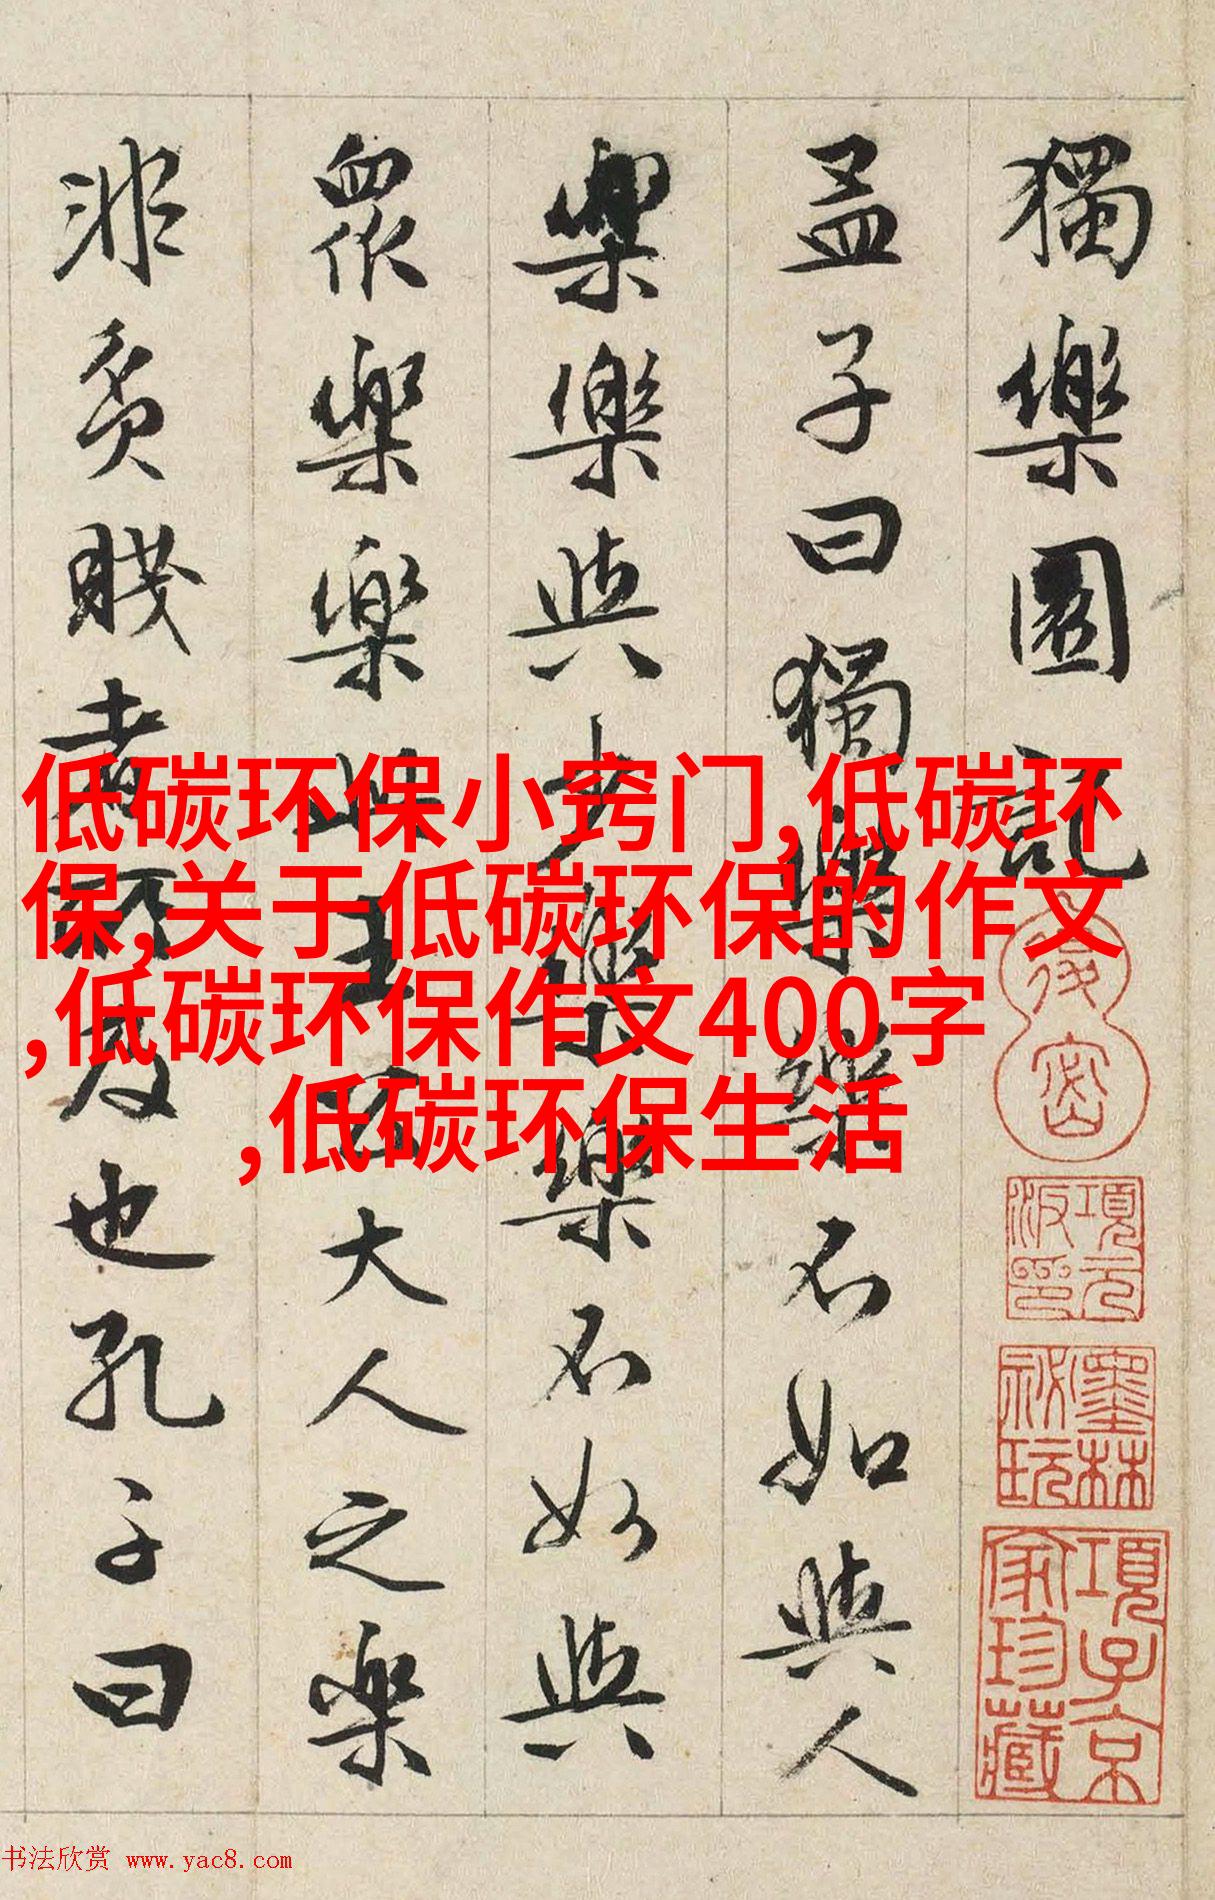 獨樂園記
孟子曰獨樂樂不如與人
樂樂與少樂樂不如與
眾樂樂此王公大人之樂
非貧賤者所及也孔子曰
低碳环保小窍门,低碳环
保,关于低碳环保的作文
,低碳环保作文400字
,低碳环保生活
項元汴印
墨林祕玩
項子京家珍藏
书法欣赏 www.yac8.com